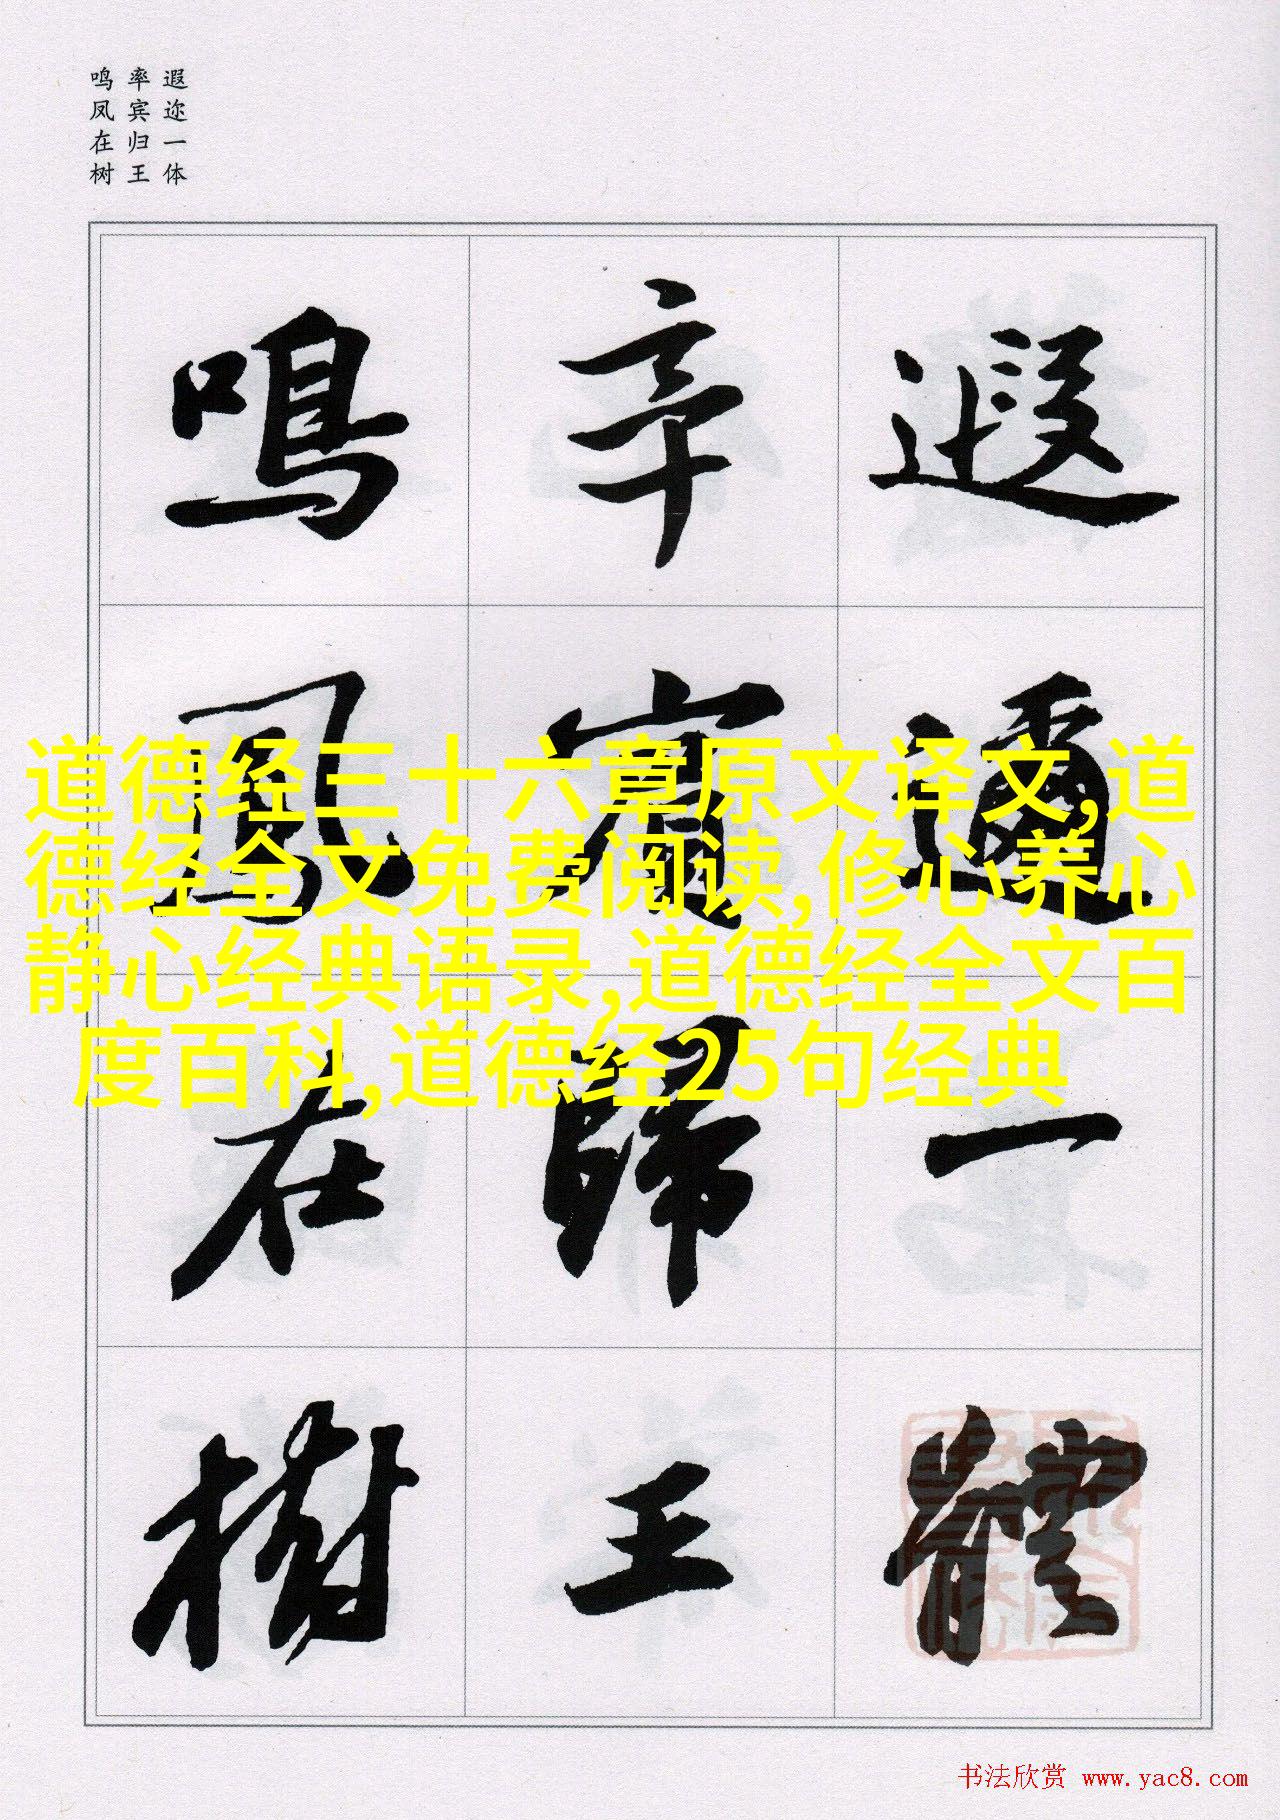 遐迩一体
率宾归王
鸣凤在树
遐邇一體
率賓歸王
鳴鳳在樹
道德经三十六章原文译文,道
德经全文免费阅读,修心养心
静心经典语录,道德经全文百
度百科,道德经25句经典
书法欣赏 www.yac8.com